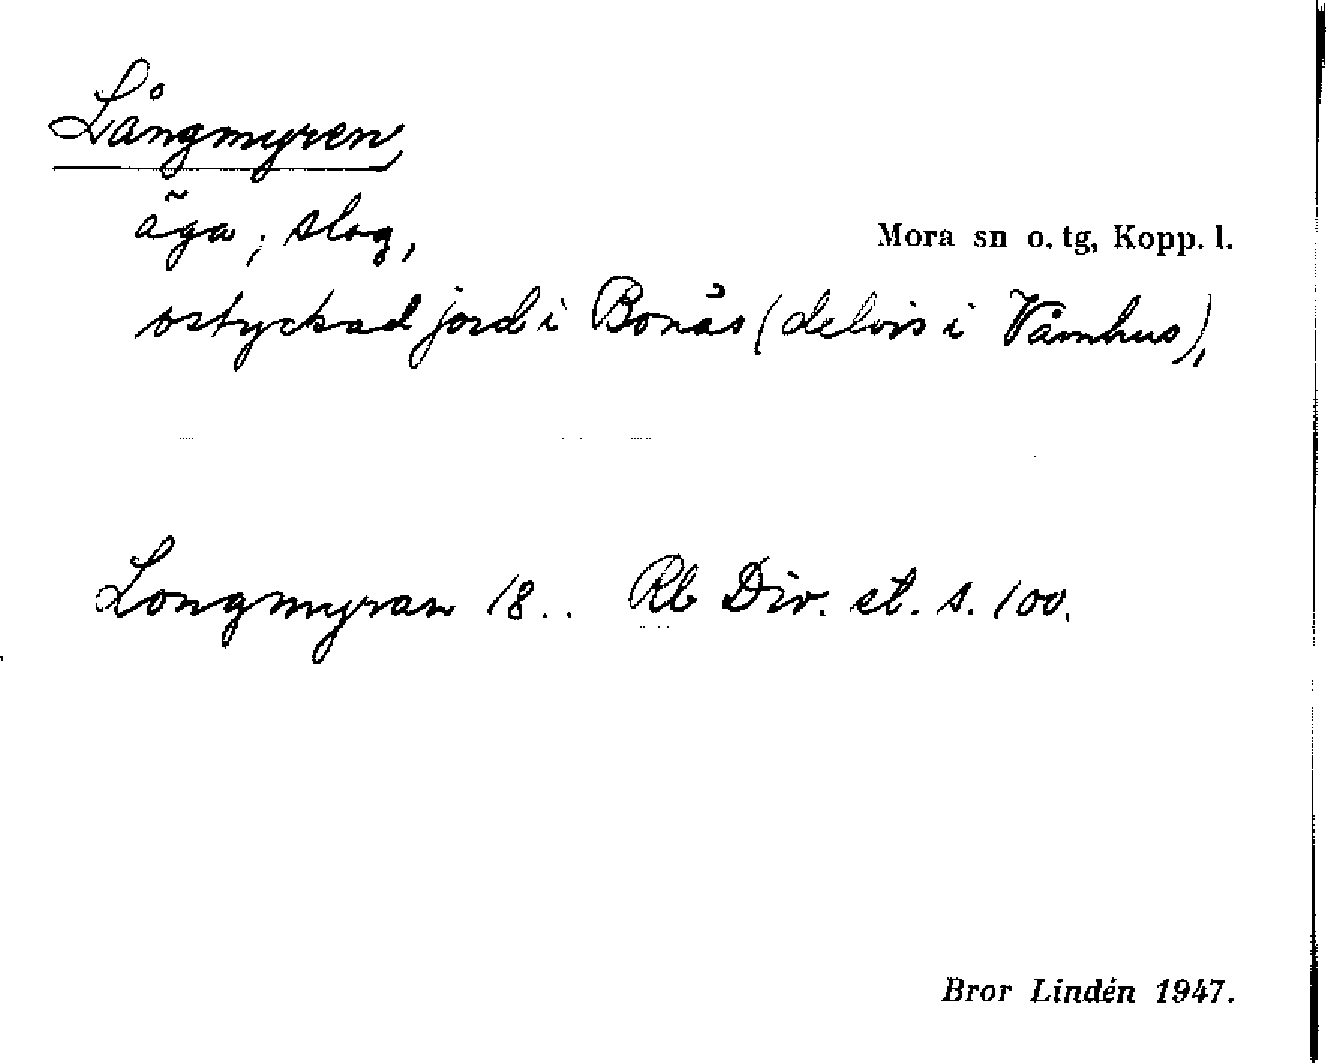 Långmyren,
äga; slog,
Mora sn o. tg, Kopp. l.
ostyckad jord i Bonäs (delvis i Våmhus),
Longmyran 18.. Rb Div. et. s. 100.
Bror Lindén 1947.